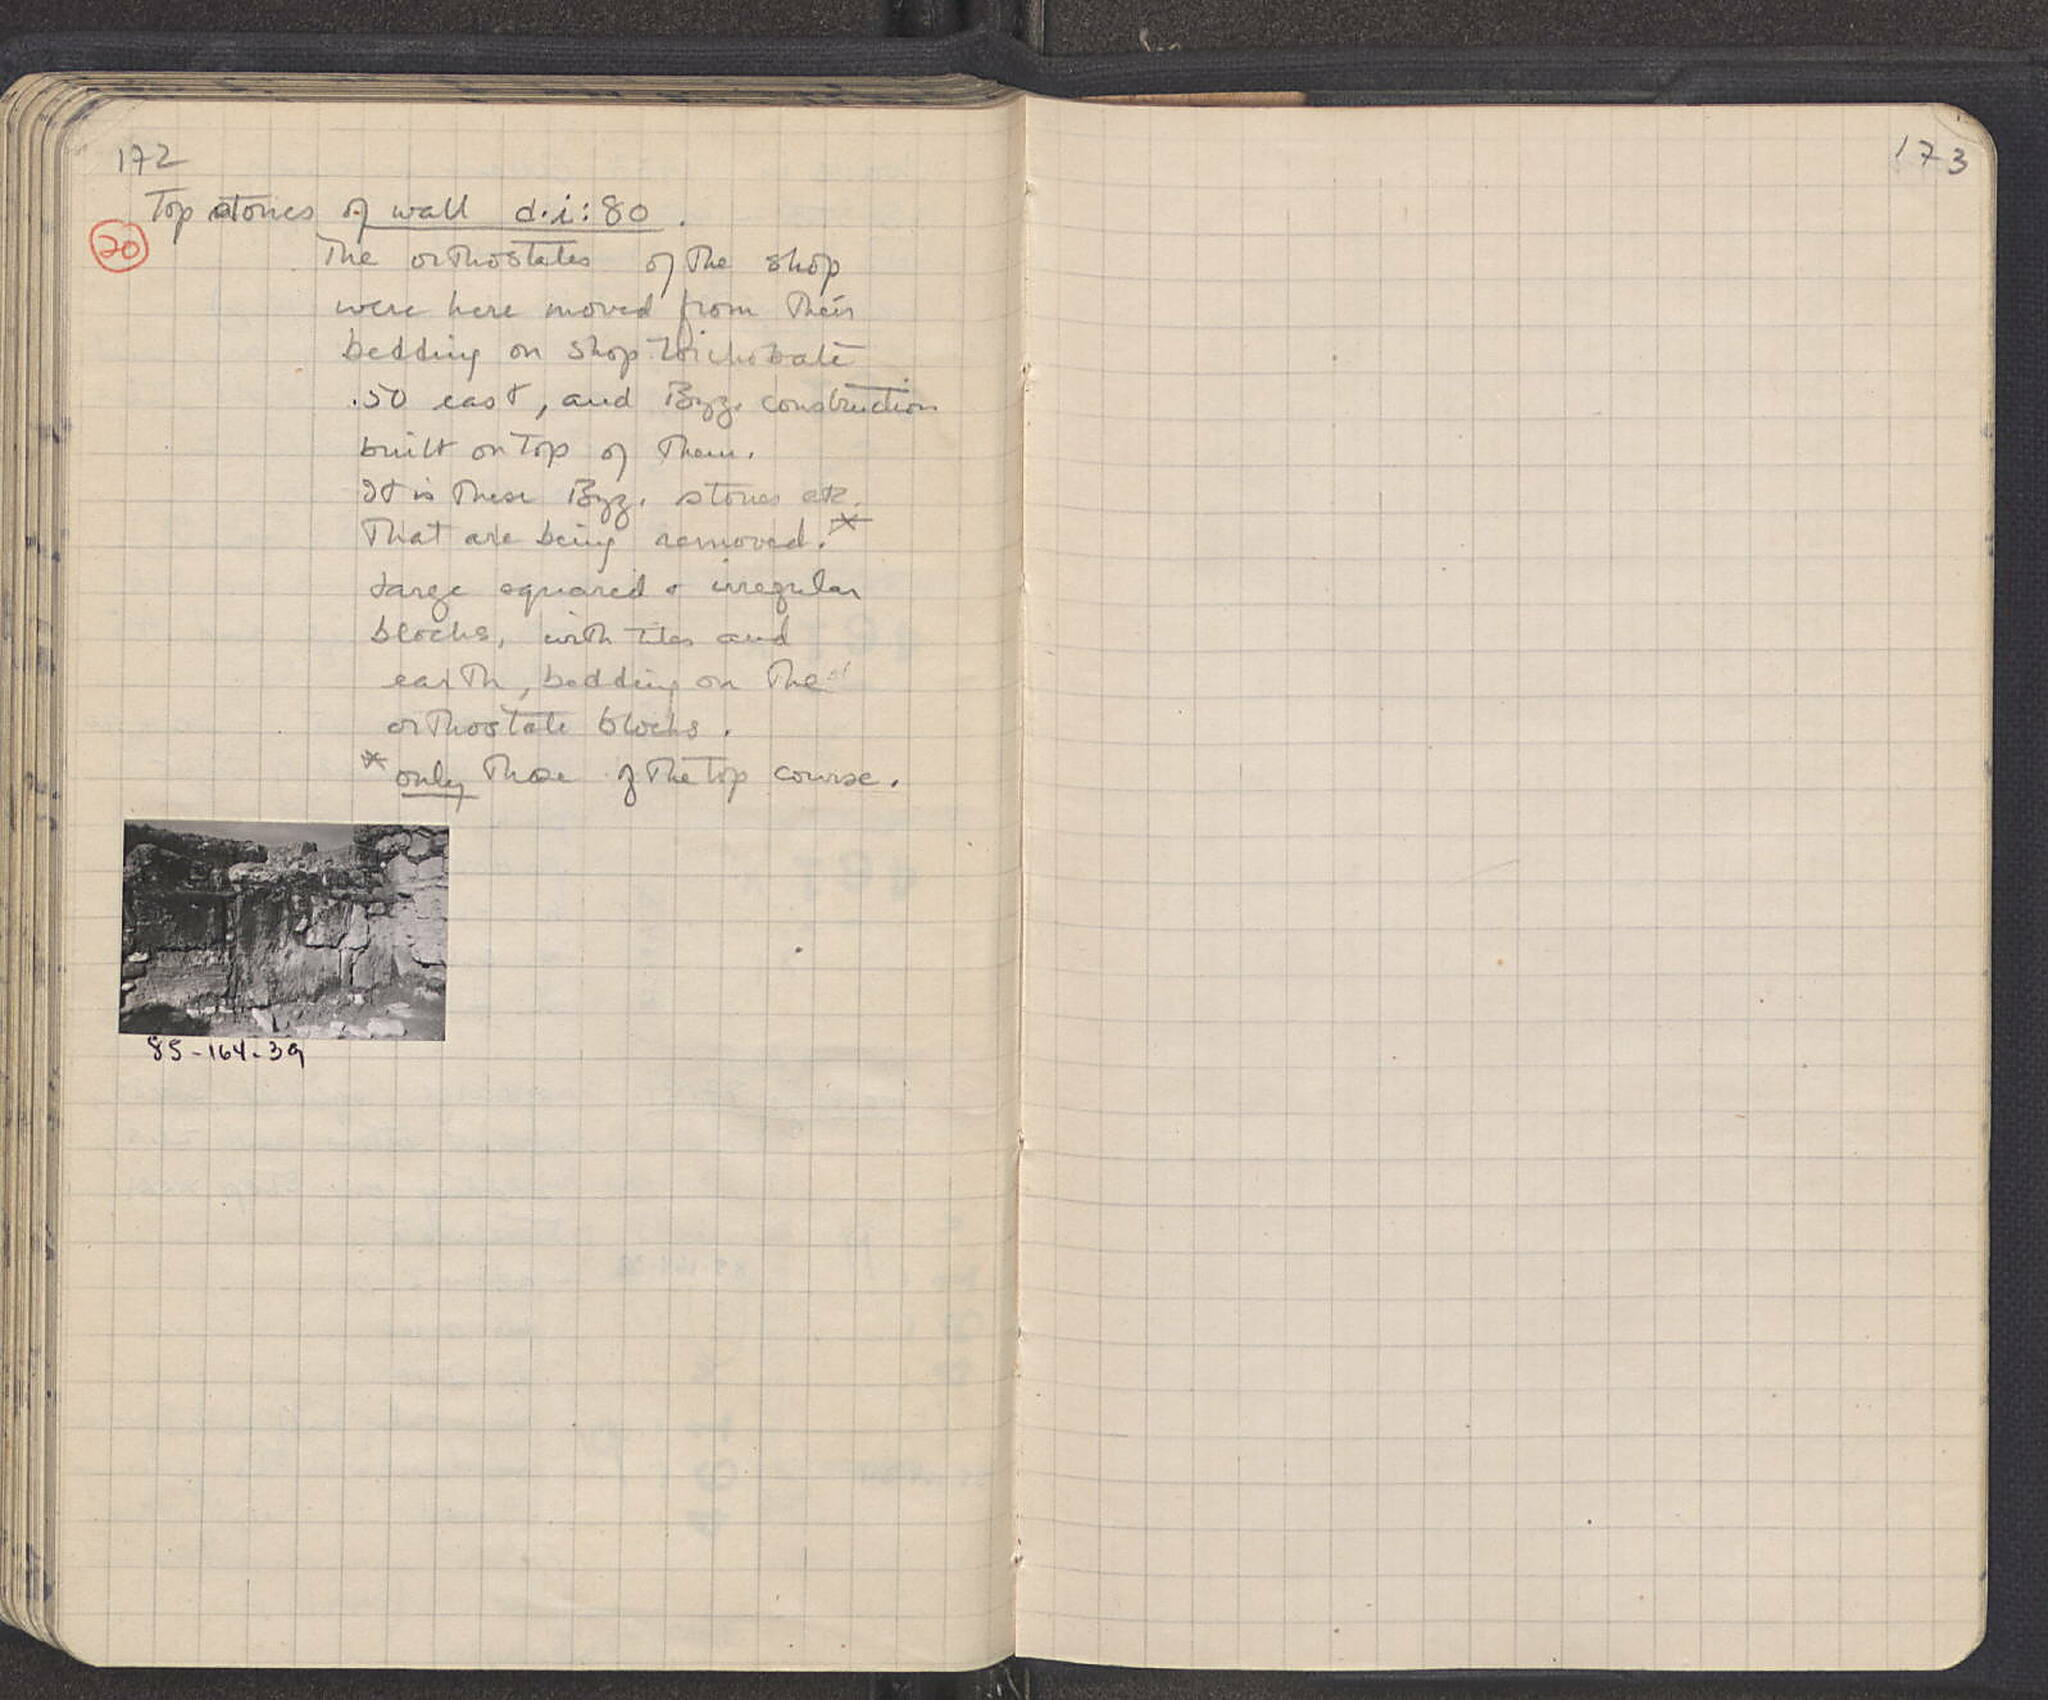 172
Top stones of wall d.i:80.
20
The orthostates of the shop
were here moved from their
bedding on shop toichobate
.50 east, and Byz. construction
built on top of them.
It is these Byz. stones etc.
that are being removed.*
Large squared & irregular
blocks, with tiles and
earth, bedding on the
orthostate blocks.
* only those of the top course.
85-164-39
173